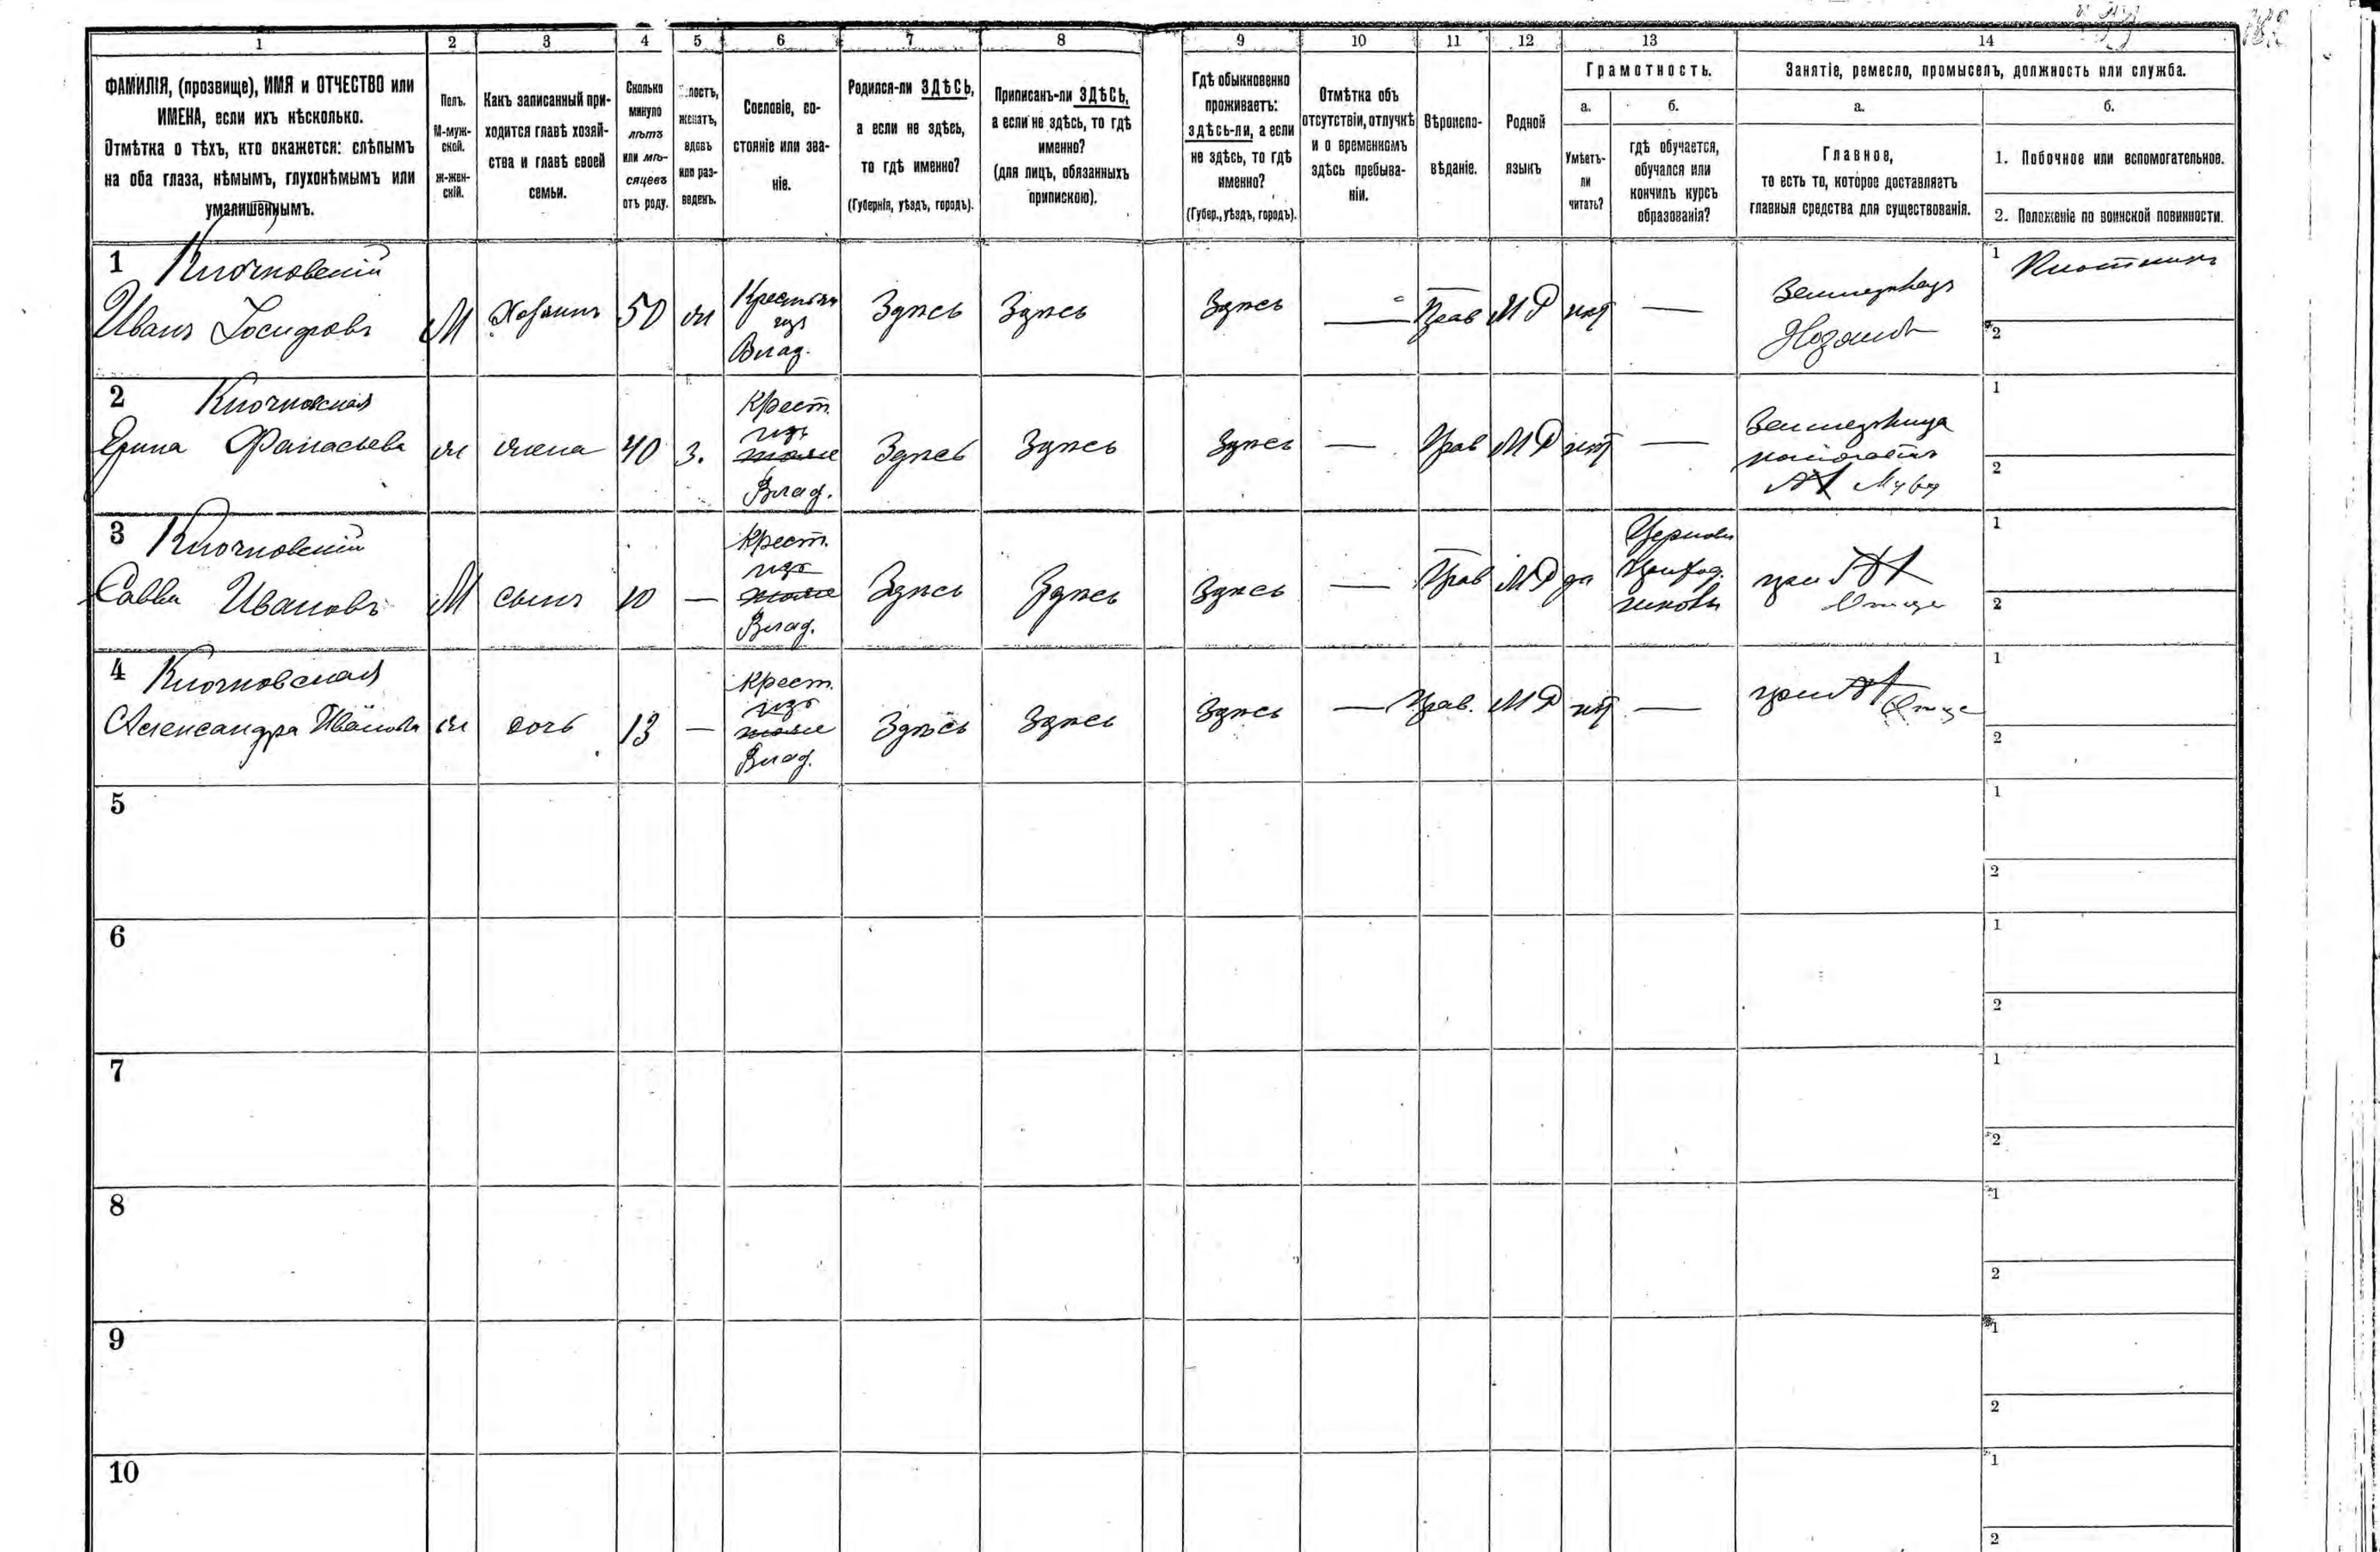 1 2 3 4 5 6 7 8 9 10 11 12 13 14
ФАМИЛІЯ, (прозвище), ИМЯ и ОТЧЕСТВО или
ИМЕНА, если ихъ нѣсколько.
Отмѣтка о тѣхъ, кто окажется: слѣпымъ
на оба глаза, нѣмымъ, глухонѣмымъ или
умалишеннымъ.
Полъ.
М-муж-
ской.
ж-жен-
скій.
Какъ записанный при-
ходится главѣ хозяй-
ства и главѣ своей
семьи.
Сколько
минуло
лѣтъ
или мѣ-
сяцевъ
отъ роду.
женатъ,
вдовъ
или раз-
веденъ.
Сословіе, со-
стояніе или зва-
ніе.
Родился-ли ЗДѢСЬ,
а если не здѣсь,
то гдѣ именно?
(Губернія, уѣздъ, городъ).
Приписанъ-ли ЗДѢСЬ,
а если не здѣсь, то гдѣ
именно?
(для лицъ, обязанныхъ
припискою).
Гдѣ обыкновенно
проживаетъ:
здѣсь-ли, а если
не здѣсь, то гдѣ
именно?
(Губер., уѣздъ, городъ).
Отмѣтка объ
отсутствіи, отлучкѣ
и о временномъ
здѣсь пребыва-
ніи.
Вѣроиспо-
вѣданіе.
Родной
языкъ
Грамотность.
а.
Умѣетъ-
ли
читать?
б.
гдѣ обучается,
обучался или
кончилъ курсъ
образованія?
Занятіе, ремесло, промыселъ, должность или служба.
а.
Главное,
то есть то, которое доставляетъ
главныя средства для существованія.
б.
1. Побочное или вспомогательное.
2. Положеніе по воинской повинности.
1 Клочковскій
Иванъ Іосифовъ
М
Хозяинъ
50
ж
Крестьян
изъ
Влад.
Здѣсь
Здѣсь
Здѣсь
—
Прав
МР
нѣт
—
Земледѣлец
Хозяинъ
1 Плотникъ
2
2 Клочковская
Ерина Фанасьева
ж
жена
40
з.
Крест.
изъ
Влад.
Здѣсь
Здѣсь
Здѣсь
—
Прав
МР
нѣт
—
Земледѣлица
1
2
3 Клочковскій
Савва Ивановъ
М
сынъ
10
—
Крест.
изъ
Влад.
Здѣсь
Здѣсь
Здѣсь
—
Прав
МР
да
Церковн
Приход.
школы
при
Отце
1
2
4 Клочковская
Александра Иванова
ж
дочь
13
—
Крест.
изъ
Влад.
Здѣсь
Здѣсь
Здѣсь
—
Прав.
МР
нѣт
—
при
Отце
1
2
5
1
2
6
1
2
7
1
2
8
1
2
9
1
2
10
1
2